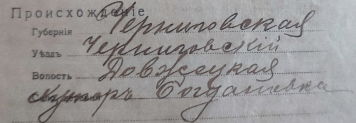 Происхожденіе
Губернія Черниговская
Уѣздъ Черниговский
Волость Довжецкая
хуторъ Богдановка